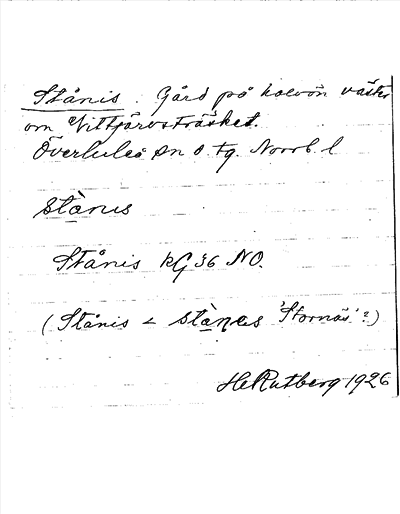 Stånis. Gård på halvön väster
om Vittjärvsträsket.
Överluleå sn o. tg. Norrb. l
stànıs
Stånis kG 36 NO.
(Stånis < stànəs 'Stornäs'?)
H Rutberg 1926